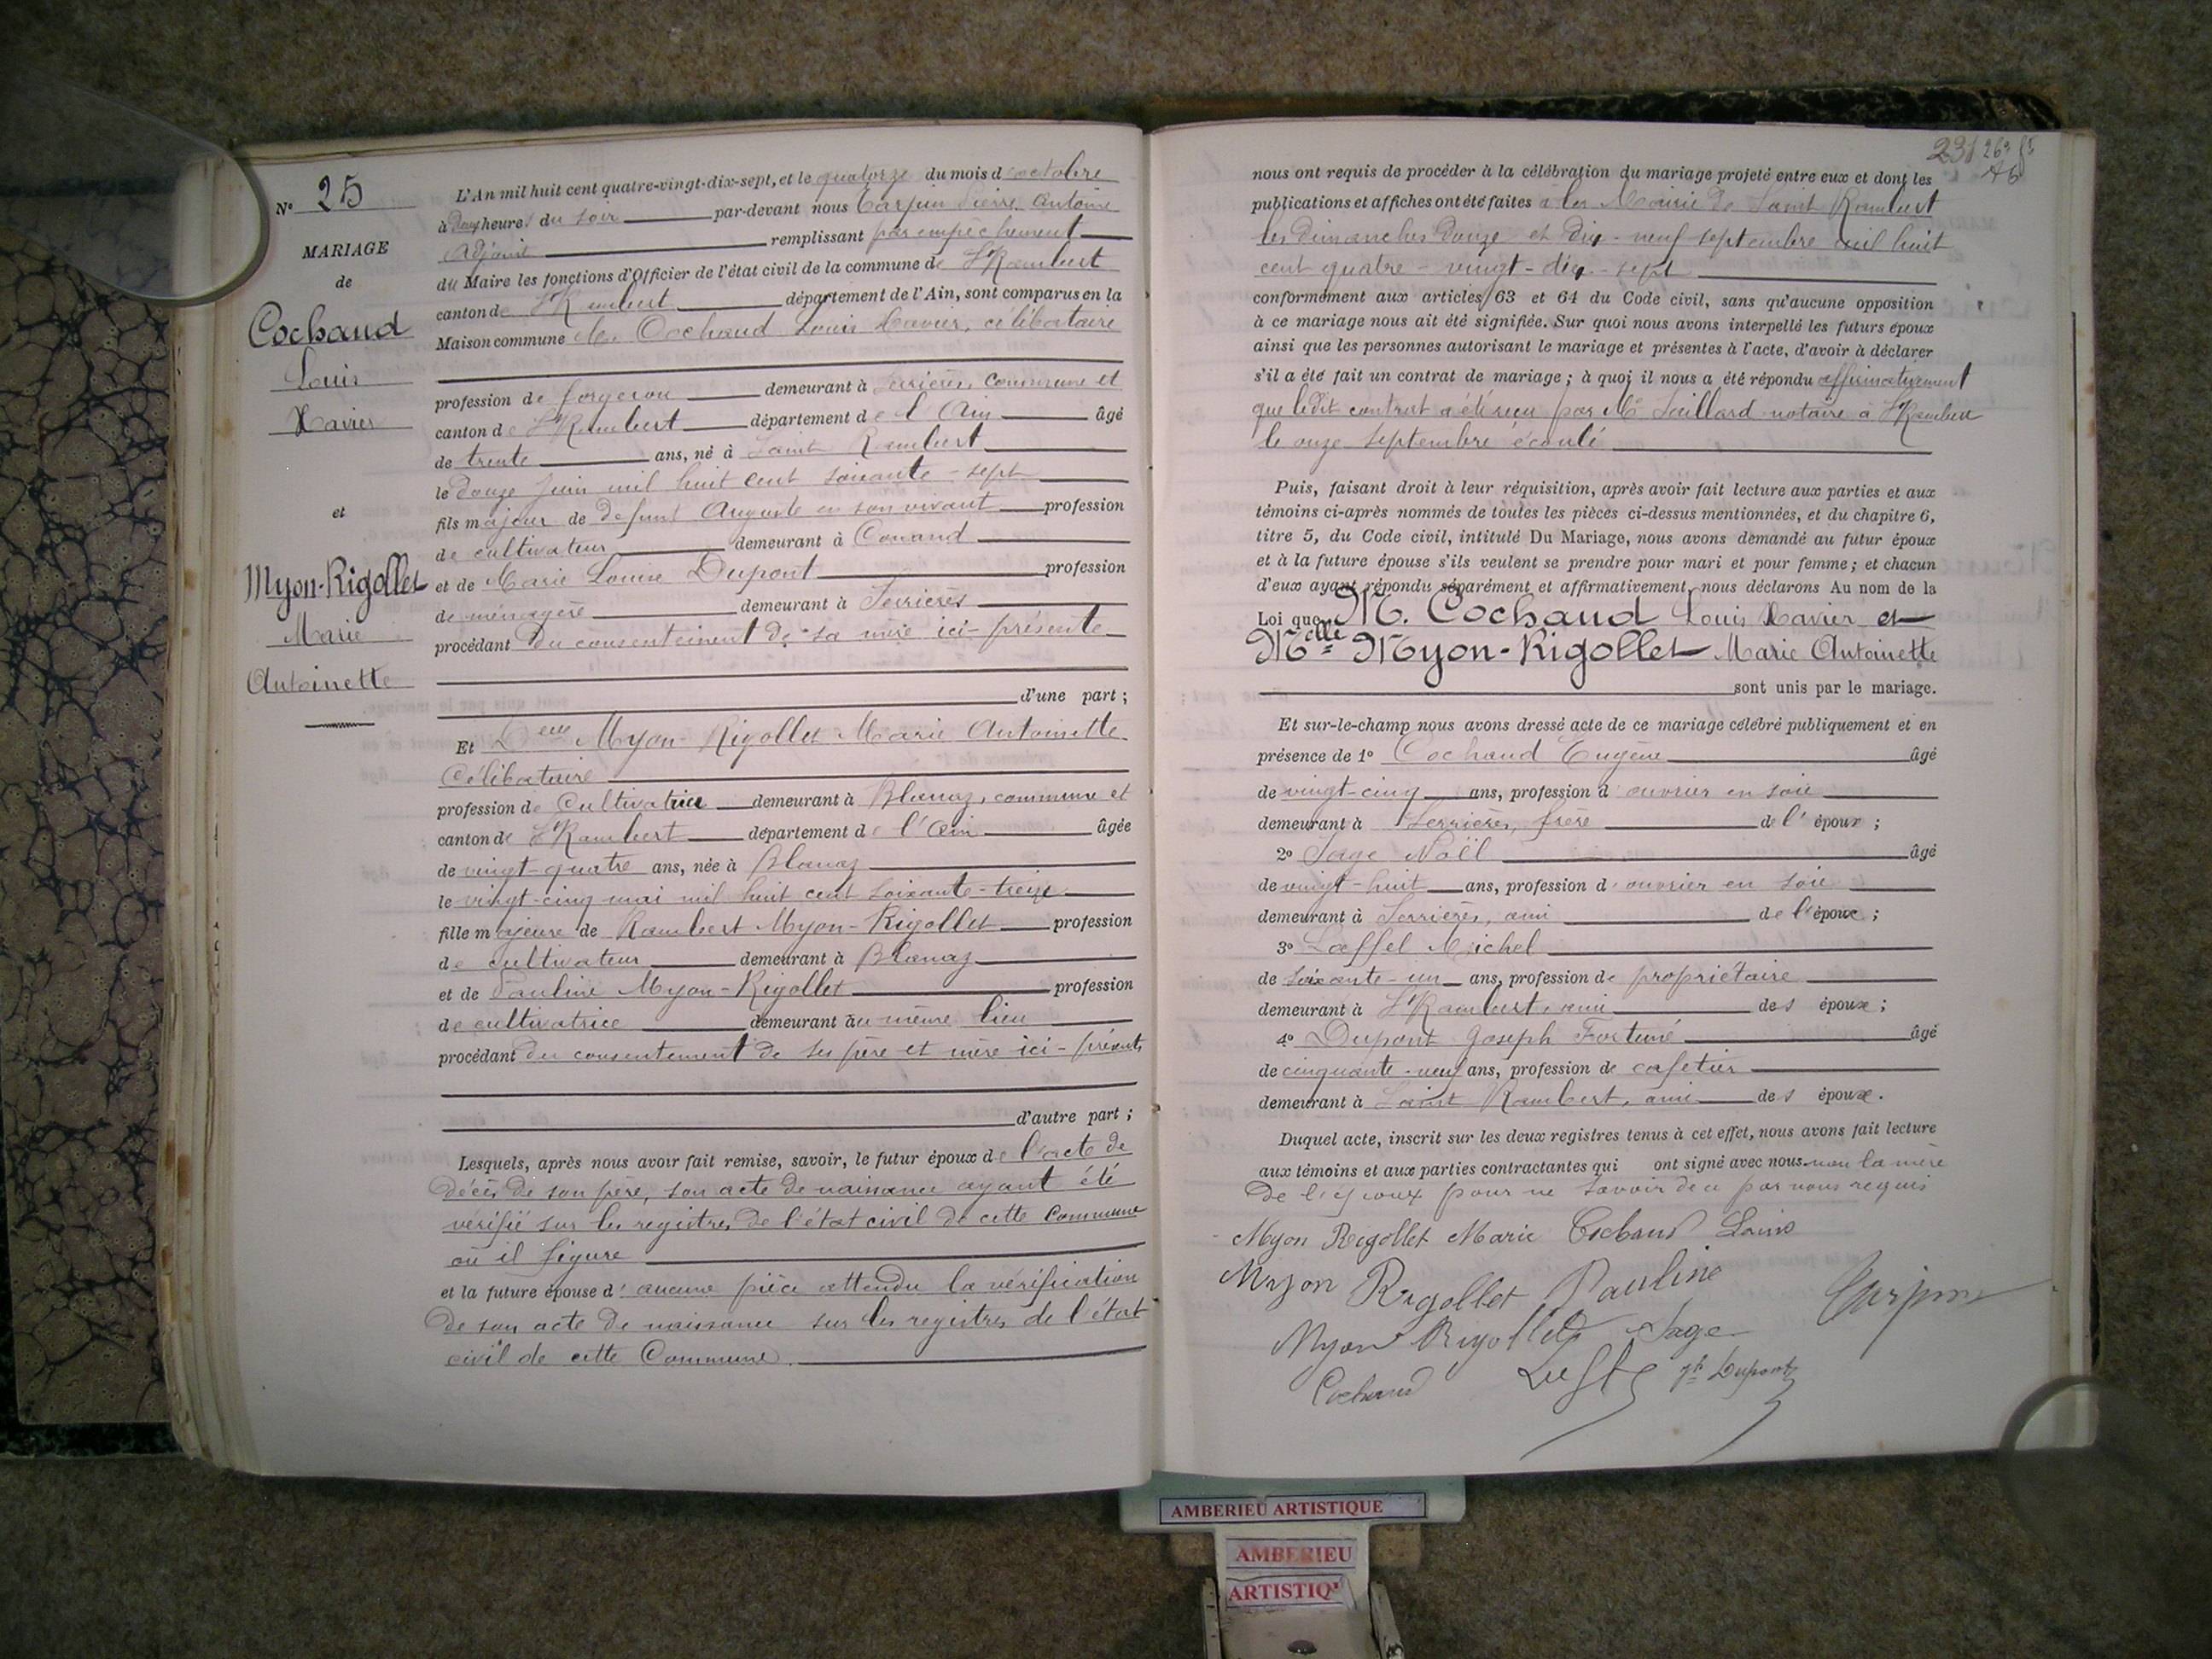 N° 25
MARIAGE
de
Cochaud
Louis
Xavier
et
Myon-Rigollet
Marie
Antoinette
L'An mil huit cent quatre-vingt-dix-sept, et le quatorze du mois d'octobre
à deux heures du soir par-devant nous Carjun Pierre Antoine
Adjoint remplissant par empêchement
du Maire les fonctions d'Officier de l'état civil de la commune de St Rambert
canton de St Rambert département de l'Ain, sont comparus en la
Maison commune Cochaud Louis Xavier, célibataire
profession de forgeron demeurant à Serrières, commune et
canton de St Rambert département de l'Ain âgé
de trente ans, né à Saint Rambert
le douze juin mil huit cent soixante-sept
fils majeur de défunt Auguste en son vivant profession
de cultivateur demeurant à Conand
et de Marie Louise Dupont profession
de ménagère demeurant à Serrières
procédant du consentement de sa mère ici-présente
d'une part ;
Et Delle Myon-Rigollet Marie Antoinette
Célibataire
profession de Cultivatrice demeurant à Blanaz, commune et
canton de St Rambert département de l'Ain âgée
de vingt-quatre ans, née à Blanaz
le vingt-cinq mai mil huit cent soixante-treize
fille majeure de Rambert Myon-Rigollet profession
de cultivateur demeurant à Blanaz
et de Pauline Myon-Rigollet profession
de cultivatrice demeurant au même lieu
procédant du consentement de ses père et mère ici-présents
d'autre part ;
Lesquels, après nous avoir fait remise, savoir, le futur époux de l'acte de
décès de son père, son acte de naissance ayant été
vérifié sur les registres de l'état civil de cette Commune
où il figure
et la future épouse d'aucune pièce attendu la vérification
de son acte de naissance sur les registres de l'état
civil de cette Commune.
231
nous ont requis de procéder à la célébration du mariage projeté entre eux et dont les
publications et affiches ont été faites à la Mairie de Saint Rambert
les dimanches douze et dix-neuf septembre mil huit
cent quatre-vingt-dix-sept
conformément aux articles 63 et 64 du Code civil, sans qu'aucune opposition
à ce mariage nous ait été signifiée. Sur quoi nous avons interpellé les futurs époux
ainsi que les personnes autorisant le mariage et présentes à l'acte, d'avoir à déclarer
s'il a été fait un contrat de mariage ; à quoi il nous a été répondu affirmativement
que ledit contrat a été reçu par Me Saillard notaire à St Rambert
le onze septembre écoulé
Puis, faisant droit à leur réquisition, après avoir fait lecture aux parties et aux
témoins ci-après nommés de toutes les pièces ci-dessus mentionnées, et du chapitre 6,
titre 5, du Code civil, intitulé Du Mariage, nous avons demandé au futur époux
et à la future épouse s'ils veulent se prendre pour mari et pour femme ; et chacun
d'eux ayant répondu séparément et affirmativement, nous déclarons Au nom de la
Loi que M. Cochaud Louis Xavier et
Melle Myon-Rigollet Marie Antoinette
sont unis par le mariage.
Et sur-le-champ nous avons dressé acte de ce mariage célébré publiquement et en
présence de 1° Cochaud Eugène âgé
de vingt-cinq ans, profession d'ouvrier en soie
demeurant à Serrières, frère de l'époux ;
2° Sage Noël âgé
de vingt-huit ans, profession d'ouvrier en soie
demeurant à Serrières, ami de l'époux ;
3° Michel
de soixante-un ans, profession de propriétaire
demeurant à St Rambert, ami des époux ;
4° Dupont Joseph Fortuné âgé
de cinquante-neuf ans, profession de cafetier
demeurant à Saint Rambert, ami des époux.
Duquel acte, inscrit sur les deux registres tenus à cet effet, nous avons fait lecture
aux témoins et aux parties contractantes qui ont signé avec nous non la mère
de l'époux pour ne savoir de ce par nous requis
Myon Rigollet Marie Cochaud Louis
Myon Rigollet Pauline
Myon Rigollet Sage
Cochaud Jh Dupont
AMBERIEU ARTISTIQUE
AMBERIEU
ARTISTIQ